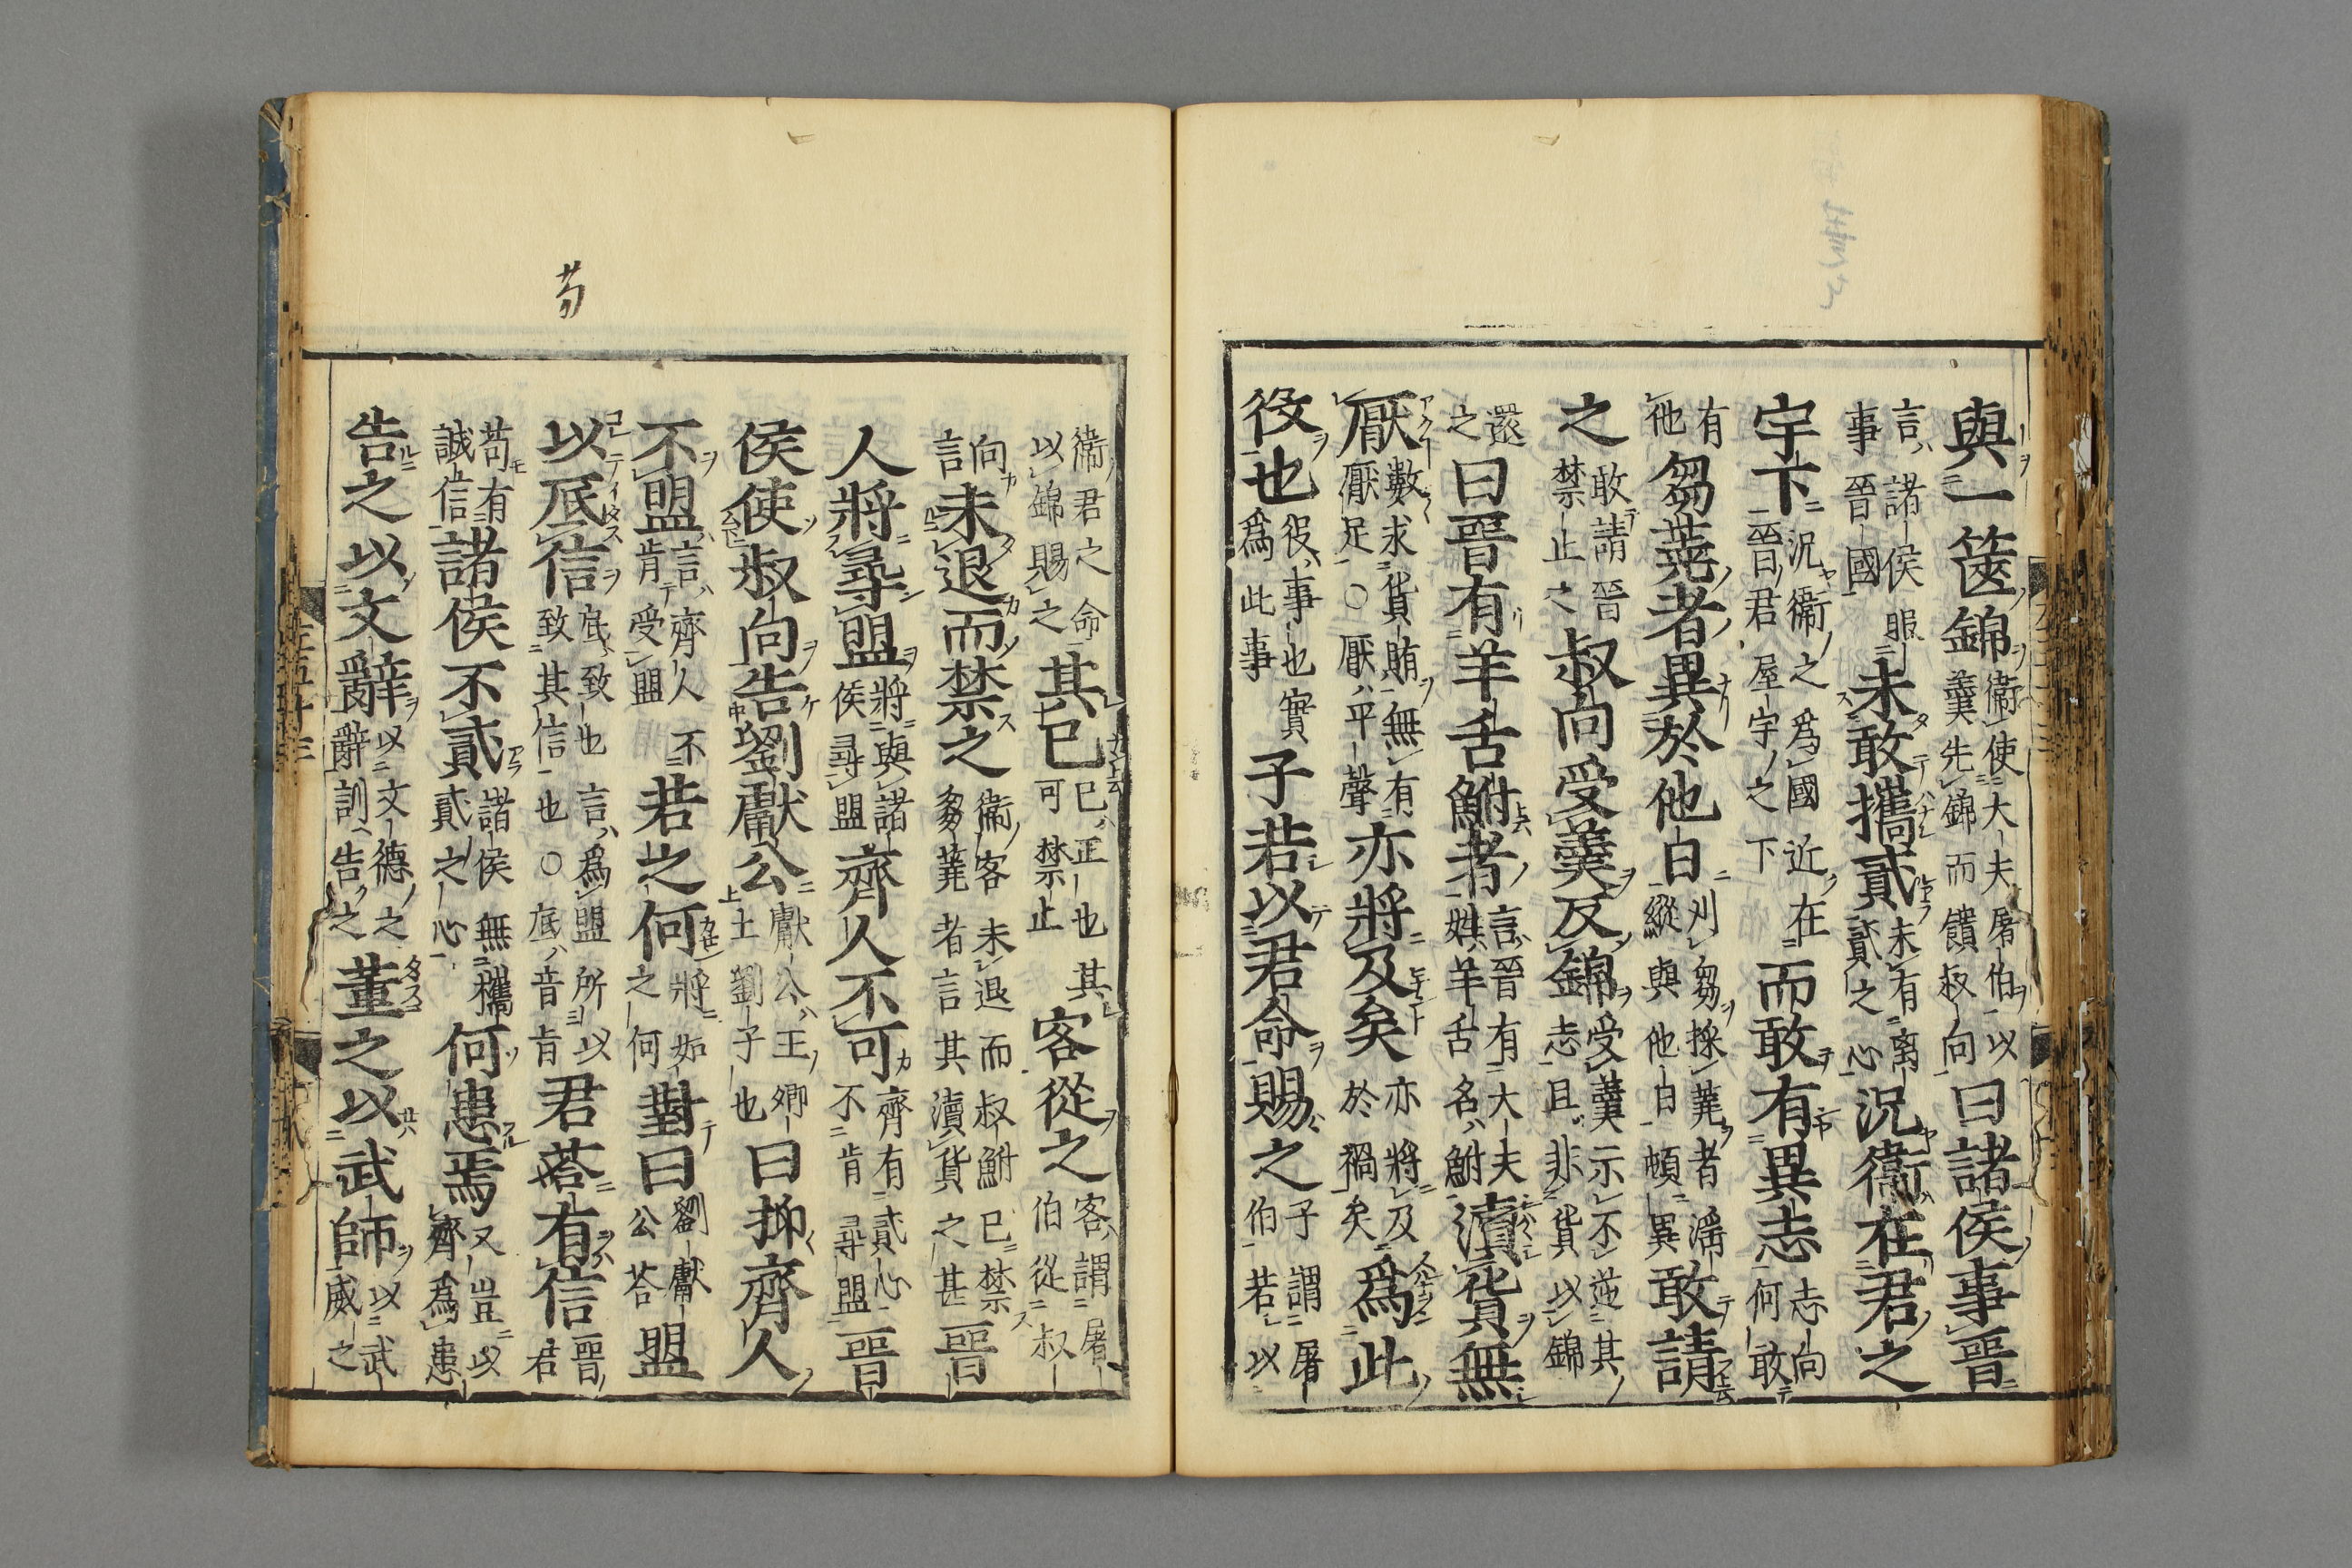 與一篋錦衛使大夫屠伯以羹先錦而饋叔向曰諸侯事晉
言諸侯服事晉國未敢攜貳未有离貳之心況衛在君之
宇下況衛之爲國近在晉君屋宇之下而敢有異志志向何敢
有他芻蕘者異於他日刈芻採蕘者滛縱與他日頓異敢請
之敢請晉禁止之叔向受羹反錦受羹示不逆其志且非貨以錦
還之曰晉有羊舌鮒者言晉有大夫姓羊舌名鮒瀆貨無
厭數求貨賄無有厭足○厭平聲亦將及矣亦將及於禍矣爲此
役也役事也實爲此事子若以君命賜之子謂屠伯若以
衛君之命以錦賜之其已已正也其可禁止客從之客謂屠伯從叔
向言未退而禁之衛客未退而叔鮒已禁芻蕘者言其瀆貨之甚晉
人將尋盟將與諸侯尋盟齊人不可齊有貳心不肯尋盟晉
侯使叔向告劉獻公獻公王卿士劉子也曰抑齊人
不盟言齊人不肯受盟若之何將如之何對曰劉獻公荅盟
苟
以底信底致也言爲盟所以致其信也○底音肯君荅有信晉君
苟有誠信諸侯不貳諸侯無攜貳之心何患焉又豈以齊爲患
告之以文辭以文德之辭訓告之董之以武師以武威之